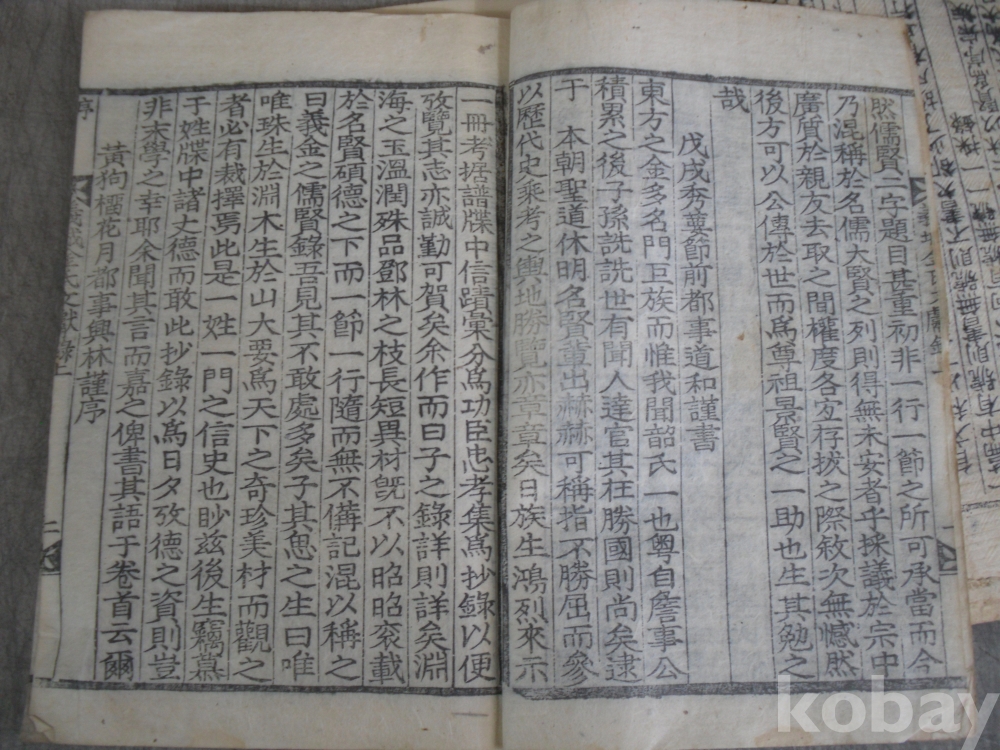 然儒賢二字題目甚重初非一行一節之所可承當而今
乃混稱於名儒大賢之列則得無未安者乎採議於宗中
廣質於親友去取之間權度各宏存拔之際敘次無憾然
後方可以公傳於世而爲尊祖景賢之一助也生其勉之
哉
戊戌秀葽節前都事道和謹書
東方之金多名門巨族而惟我聞韶氏一也粤自詹事公
積累之後子孫詵詵世有聞人達官其在勝國則尚矣逮
于 本朝聖道休明名賢輩出赫赫可稱指不勝屈而參
以歷代史乘考之輿地勝覽亦章章矣日族生鴻烈來示
一冊考据譜牒中信蹟彙分爲功臣忠孝集爲抄錄以便
攷覽其志亦誠勤可賀矣余作而曰子之錄詳則詳矣淵
海之玉溫潤殊品鄧林之枝長短異材旣不以昭昭衮載
於名賢碩德之下而一節一行隨而無不備記混以稱之
曰義金之儒賢錄吾見其不敢處多矣子其思之生曰唯
唯珠生於淵木生於山大要爲天下之奇珍美材而觀之
者必有裁擇焉此是一姓一門之信史也眇玆後生竊慕
于姓牒中諸丈德而敢此抄錄以爲日夕攷德之資則豈
非末學之幸耶余聞其言而嘉之俾書其語于卷首云爾
黃狗櫻花月都事興林謹序
序
金氏文獻錄
二
kobay